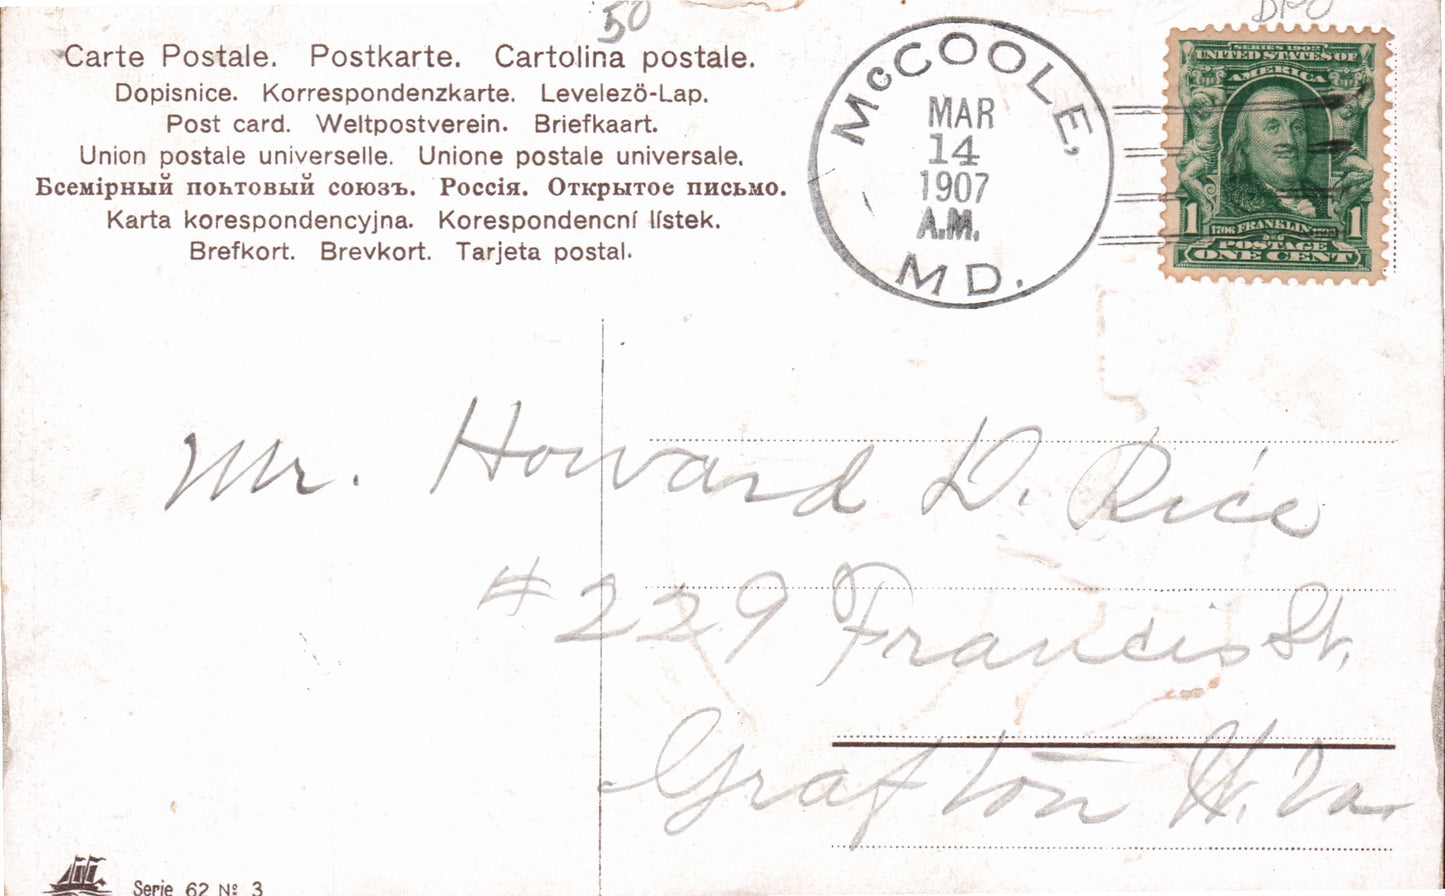 50
DPO
Carte Postale. Postkarte. Cartolina postale.
Dopisnice. Korrespondenzkarte. Levelezö-Lap.
Post card. Weltpostverein. Briefkaart.
Union postale universelle. Unione postale universale.
Всемірный поътовый союзъ. Россія. Открытое письмо.
Karta korespondencyjna. Korespondencní lístek.
Brefkort. Brevkort. Tarjeta postal.
McCOOLE,
MAR
14
1907
A.M.
MD.
SERIES 1902
UNITED STATES OF
AMERICA
1 1
1706 FRANKLIN 1790
POSTAGE
ONE CENT
Mr. Howard D. Rice
#229 Francis St.
Grafton W. Va.
Serie 62 № 3